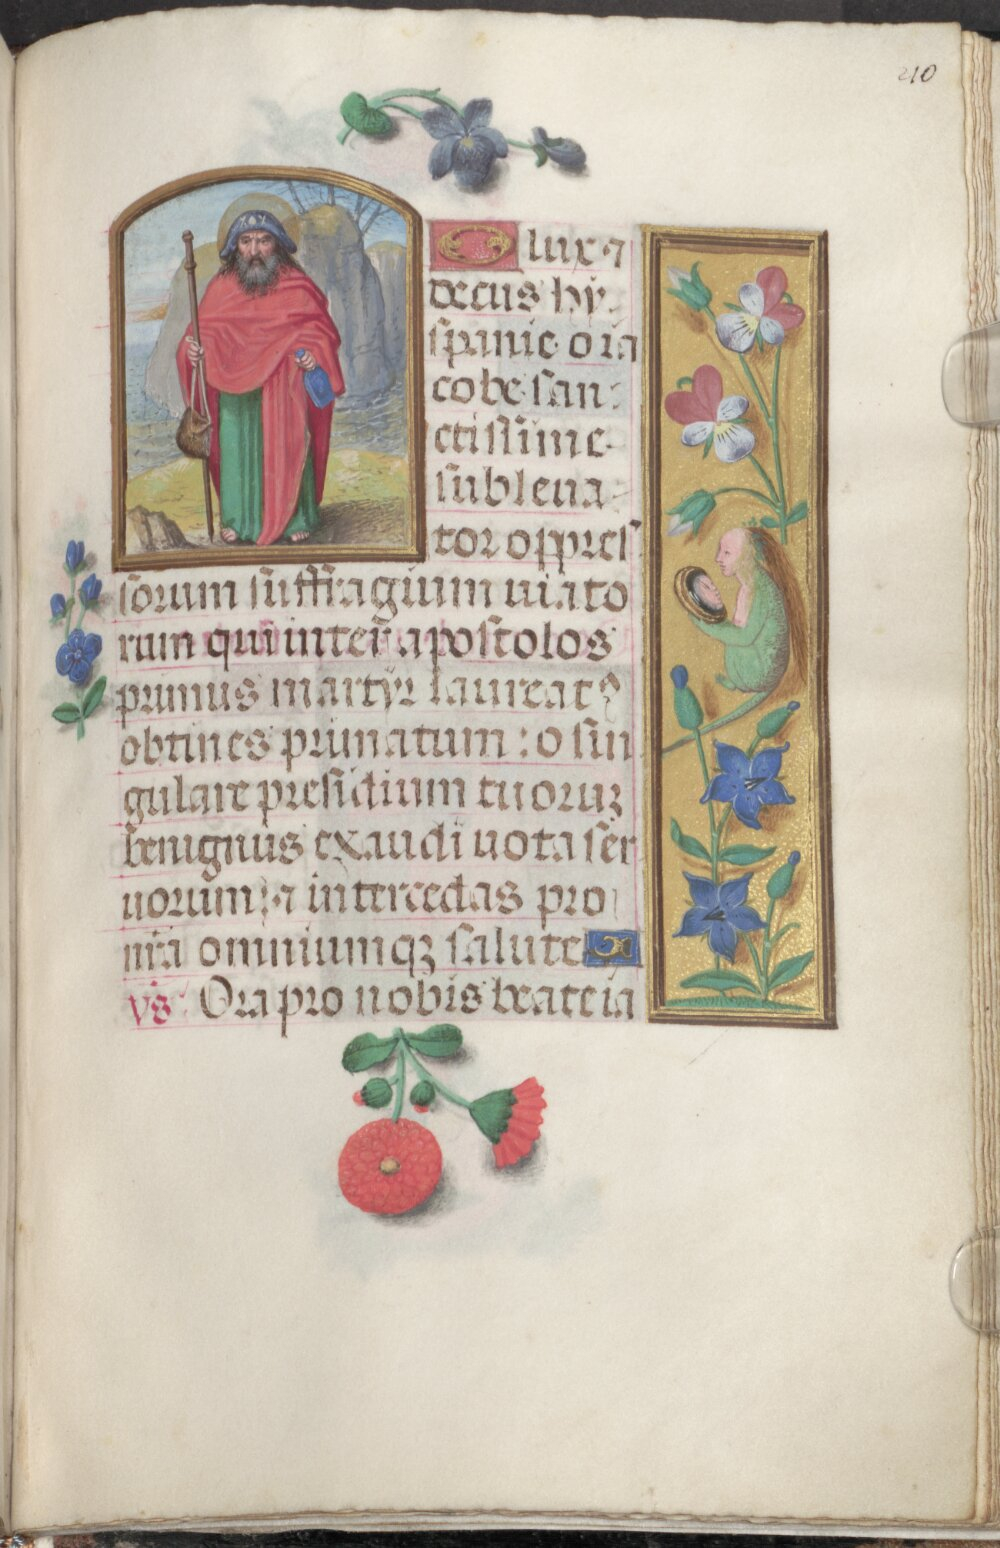 210
O lux ⁊
decus hy
spanie o ia
cobe san
ctissime
subleua
tor oppres
sorum suffragium uiato
rum qui inter apostolos
primus martyr laureatꝰ
obtines primatum : o sin
gulare presidium tuoruꝝ
benignus exaudi uota ser
uorum : ⁊ intercedas pro
nr̄a omniumqꝫ salute
vs̄. Ora pro nobis beate ia